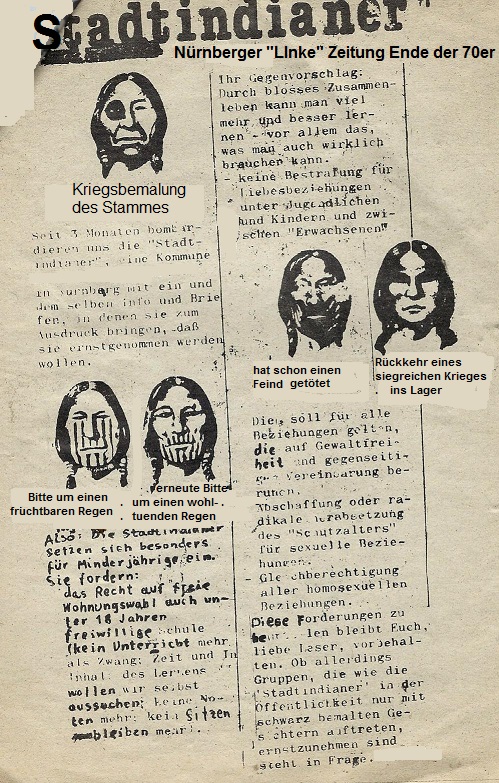 Stadtindianer"
Nürnberger "LInke" Zeitung Ende der 70er
Kriegsbemalung
des Stammes
Seit 3 Monaten bombar-
dieren uns die "Stadt-
indianer", eine Kommune
in Nürnberg mit ein und
dem selben Info und Brie
fen, in denen sie zum
Ausdruck bringen, daß
sie ernstgenommen werden
wollen.
Bitte um einen
fruchtbaren Regen
erneute Bitte
um einen wohl-
tuenden Regen
Also: Die Stadtindianer
setzen sich besonders
für Minderjährige ein.
Sie fordern:
das Recht auf freie
Wohnungswahl auch un-
ter 18 Jahren
freiwillige Schule
(kein Unterricht mehr
als Zwang: Zeit und In
Inhalt des Lernens
wollen wir selbst
aussuchen: keine No-
ten mehr: kein Sitzen
bleiben mehr).
Ihr Gegenvorschlag:
Durch blosses Zusammen-
leben kann man viel
mehr und besser ler-
nen - vor allem das,
was man auch wirklich
brauchen kann.
- keine Bestrafung für
Liebesbeziehungen
unter Jugendlichen
und Kindern und zwi-
schen "Erwachsenen"
hat schon einen
Feind getötet
Rückkehr eines
siegreichen Krieges
ins Lager
Dies soll für alle
Beziehungen gelten,
die auf Gewaltfrei-
heit und gegenseiti-
ger Vereinbarung be-
ruhen.
Abschaffung oder ra-
dikale Herabsetzung
des "Schutzalters"
für sexuelle Bezie-
hungen.
- Gleichberechtigung
aller homosexuellen
Beziehungen.
Diese Forderungen zu
beurteilen bleibt Euch,
liebe Leser, vorbehal-
ten. Ob allerdings
Gruppen, die wie die
"Stadtindianer" in der
Öffentlichkeit nur mit
schwarz bemalten Ge-
sichtern auftreten,
ernstzunehmen sind
steht in Frage.